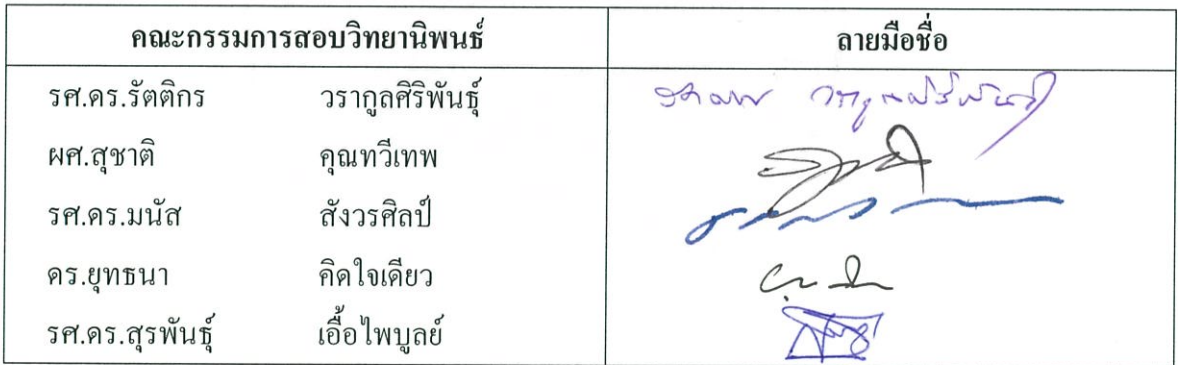 คณะกรรมการสอบวิทยานิพนธ์ ลายมือชื่อ
รศ.ดร.รัตติกร วรากูลศิริพันธุ์
ผศ.สุชาติ คุณทวีเทพ
รศ.ดร.มนัส สังวรศิลป์
ดร.ยุทธนา คิดใจเดียว
รศ.ดร.สุรพันธุ์ เอื้อไพบูลย์